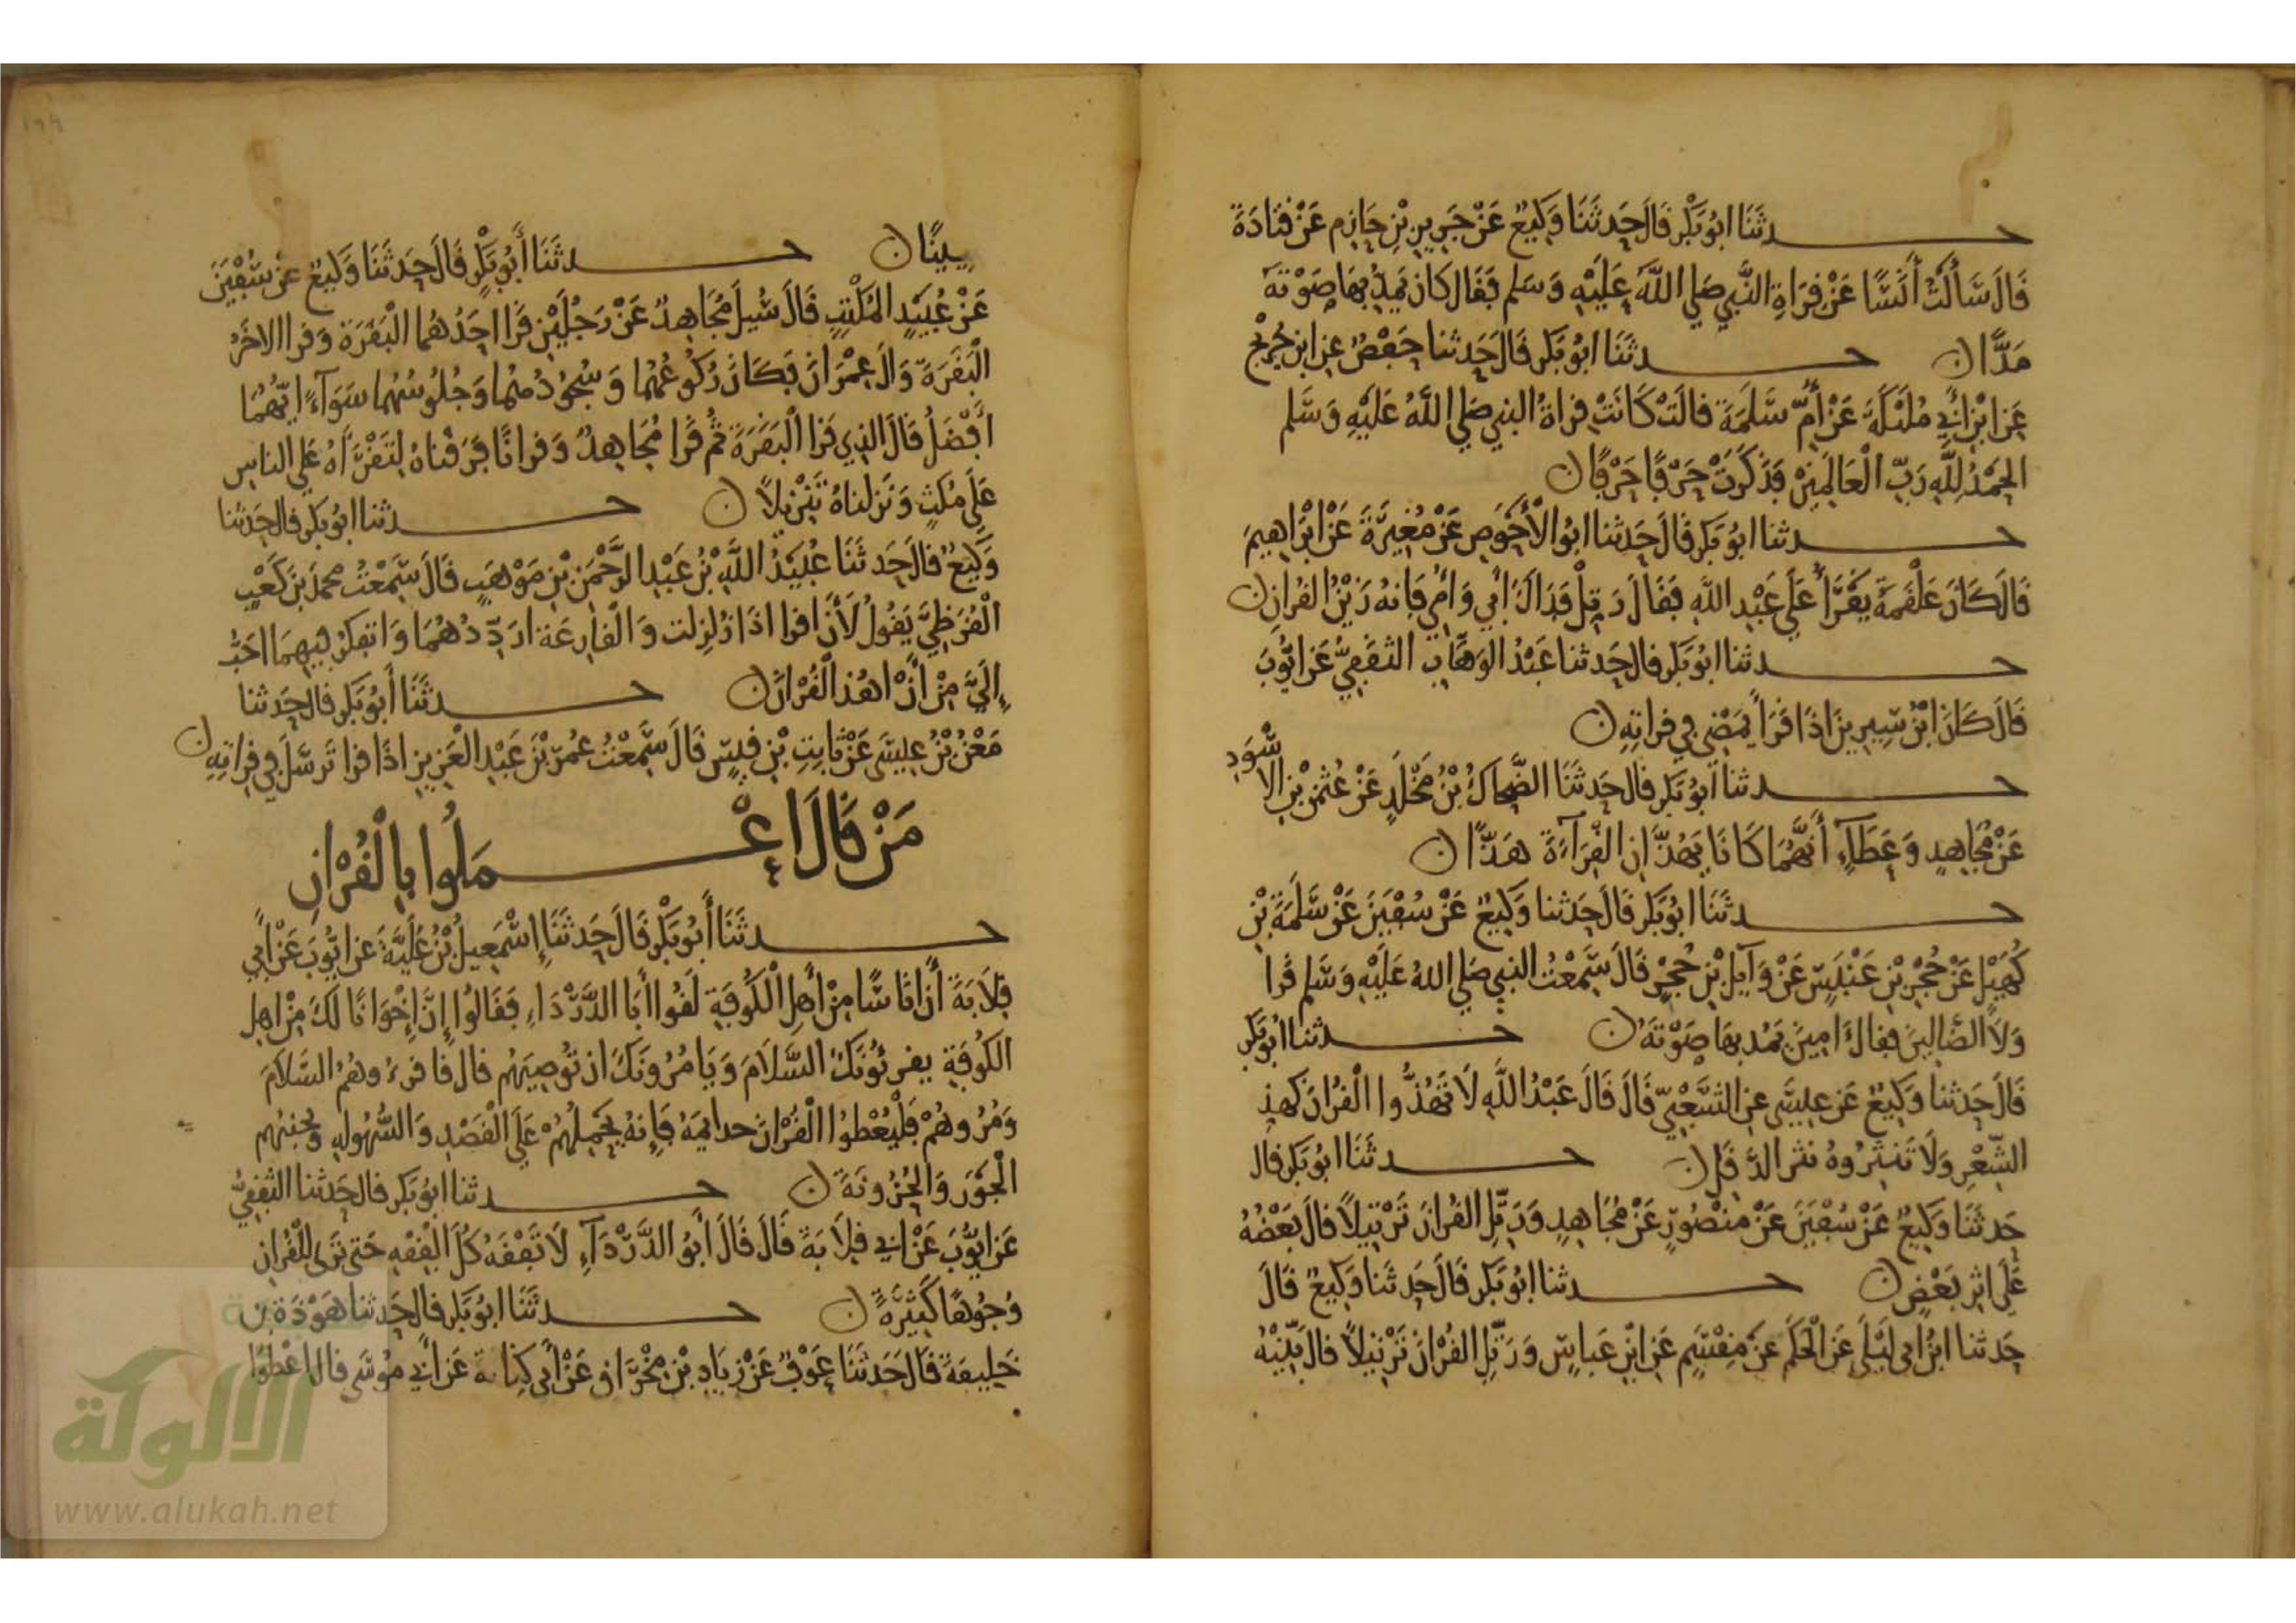 حدثنا ابو بكر قال حدثنا وكيع عن جرير بن حازم عن قتادة
قال سألت أنسا عن قراة النبي صلى الله عليه وسلم فقال كان يمد بها صوته
مدا ن حدثنا ابو بكر قال حدثنا حفص عن ابن جريج
عن ابن أبي مليكة عن أم سلمة قالت كانت قراة النبي صلى الله عليه وسلم
الحمد لله رب العالمين فذكرت حرفا حرفا ن
حدثنا ابو بكر قال حدثنا ابو الأحوص عن مغيرة عن ابراهيم
قال كان علقمة يقرأ على عبد الله فقال رتل فداك أبي وأمي فانه زين القران ن
حدثنا ابو بكر قال حدثنا عبد الوهاب الثقفي عن ايوب
قال كان ابن سيرين اذا قرأ يمضي في قراته ن
حدثنا ابو بكر قال حدثنا الضحاك بن مخلد عن عثمن بن الاسود
عن مجاهد وعطاء أنهما كانا يهذان القراءة هذا ن
حدثنا ابو بكر قال حدثنا وكيع عن سفين عن سلمة بن
كهيل عن حجر بن عنبس عن وآيل بن حجر قال سمعت النبي صلى الله عليه وسلم قرا
ولا الضالين فقال امين يمد بها صوته ن حدثنا ابو بكر
قال حدثنا وكيع عن عيسى عن الشعبي قال قال عبد الله لا تهذوا القران كهذ
الشعر ولا تنثروه نثر الدقل ن حدثنا ابو بكر قال
حدثنا وكيع عن سفين عن منصور عن مجاهد ورتل القران ترتيلا قال بعضه
على اثر بعض ن حدثنا ابو بكر قال حدثنا وكيع قال
حدثنا ابن ابي ليلى عن الحكم عن مقسم عن ابن عباس ورتل القران ترتيلا قال بينه
بينا ن حدثنا أبو بكر قال حدثنا وكيع عن سفين
عن عبيد المكتب قال سيل مجاهد عن رجلين قرا احدهما البقرة وقرا الاخر
البقرة وال عمران فكان ركوعهما وسجودهما وجلوسهما سواء ايهما
افضل قال الذي قرا البقرة ثم قرا مجاهد وقرانا فرقناه لتقرأه على الناس
على مكث ونزلناه تنزيلا ن حدثنا ابو بكر قال حدثنا
وكيع قال حدثنا عبيد الله بن عبد الرحمن بن موهب قال سمعت محمد بن كعب
القرظي يقول لأن اقرا اذا زلزلت والقارعة ارددهما واتفكر فيهما احب
إلي من أن اهذ القران ن حدثنا أبو بكر قال حدثنا
معن بن عيسى عن ثابت بن قيس قال سمعت عمر بن عبد العزيز اذا قرا ترسل في قراته ن
من قال اعملوا بالقران
حدثنا أبو بكر قال حدثنا إسمعيل بن علية عن ايوب عن أبي
قلابة أن ناسا من أهل الكوفة لقوا أبا الدرداء فقالوا إن إخوانا لك من اهل
الكوفة يقرئونك السلام ويامرونك ان توصيهم قال فاقرءوهم السلام
ومروهم فليعطوا القران خزائمه فإنه يحملهم على القصد والسهولة ويجنبهم
الجور والحزونة ن حدثنا ابو بكر قال حدثنا الثقفي
عن ايوب عن ابي قلابة قال قال أبو الدرداء لا تفقه كل الفقه حتى ترى للقران
وجوها كثيرة ن حدثنا ابو بكر قال حدثنا هوذة بن
خليفة قال حدثنا عوف عن زياد بن مخراق عن أبي كنانة عن أبي موسى قال اعطوا
الألوكة
www.alukah.net